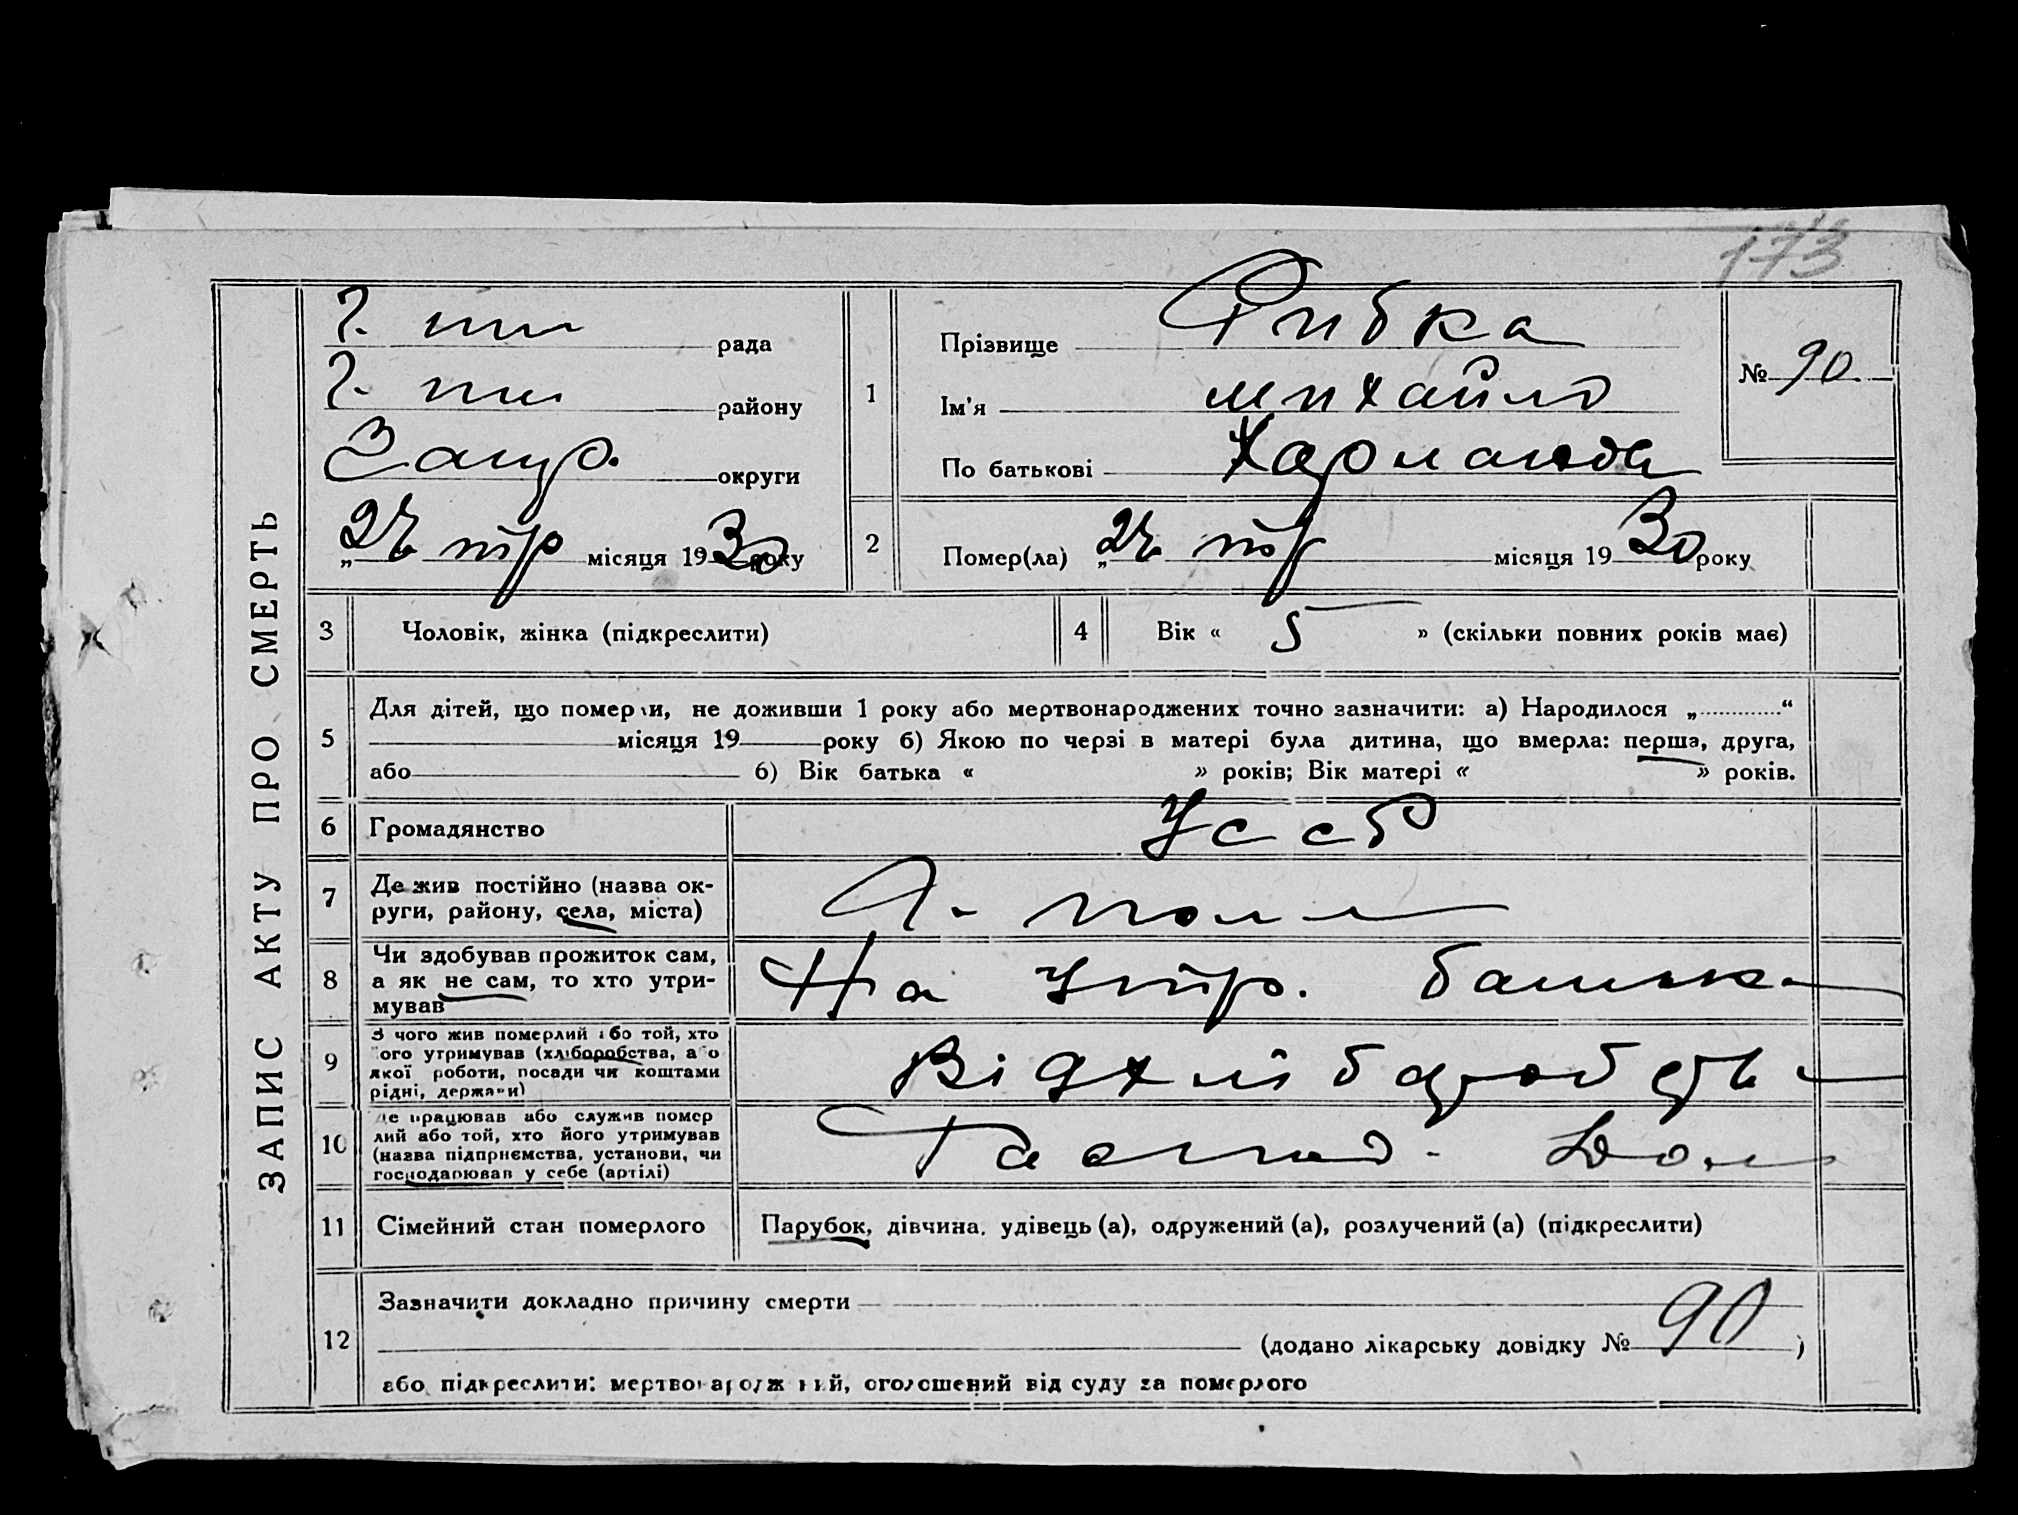 173
ЗАПИС АКТУ ПРО СМЕРТЬ
рада
району
Запор. округи
„ тр місяця 1930 року
1
Прізвище Рибка
Ім'я михайло
По батькові
№ 90
2
Помер(ла) „ тр місяця 1930 року
3 Чоловік, жінка (підкреслити)
4 Вік « 5 » (скільки повних років має)
5
Для дітей, що померли, не доживши 1 року або мертвонароджених точно зазначити: а) Народилося „ “
місяця 19 року б) Якою по черзі в матері була дитина, що вмерла: перша, друга,
або б) Вік батька « » років; Вік матері « » років.
6 Громадянство Усср
7 Де жив постійно (назва ок-
руги, району, села, міста)
Г- поле
8 Чи здобував прожиток сам,
а як не сам, то хто утри-
мував
На утр. батька
9 З чого жив померлий або той, хто
його утримував (хліборобства, або
якої роботи, посади чи коштами
рідні, держави)
Від хліборобства
10 Де працював або служив помер
лий або той, хто його утримував
(назва підприємства, установи, чи
господарював у себе (артілі)
11 Сімейний стан померлого Парубок, дівчина, удівець (а), одружений (а), розлучений (а) (підкреслити)
12
Зазначити докладно причину смерти
(додано лікарську довідку № 90 )
або підкреслити: мертвонароджений, оголошений від суду за померлого